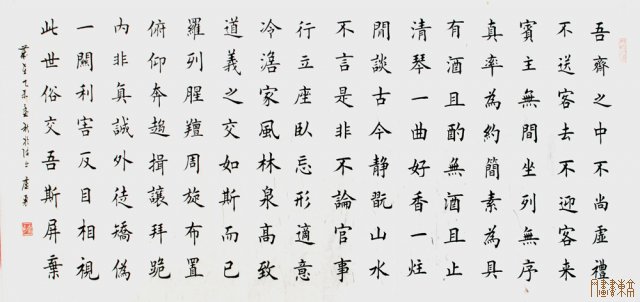 吾齊之中不尚虛禮
不送客去不迎客來
賓主無間坐列無序
真率為約簡素為具
有酒且酌無酒且止
清琴一曲好香一炷
閒談古今静翫山水
不言是非不論官事
行立座臥忘形適意
冷澹家風林泉高致
道義之交如斯而已
羅列腥羶周旋布置
俯仰奔趨揖讓拜跪
內非真誠外徒矯偽
一關利害反目相視
此世俗交吾斯屏棄